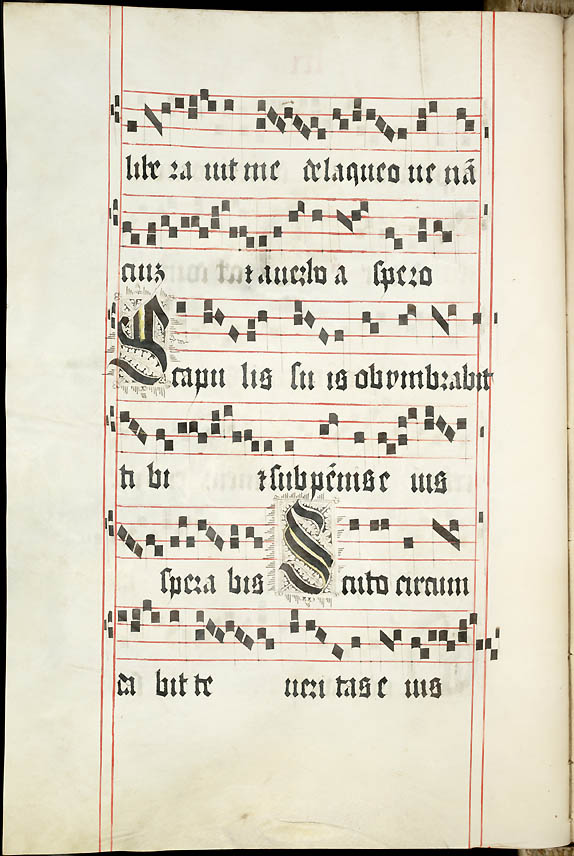 libe ra uit me de laqueo ue nã
tiuʒ ⁊ a uerbo a spero
Scapu lis su is obvmbrabit
ti bi ⁊ sub pẽnis e ius
spera bis Scuto circum
da bit te ueri tas e ius